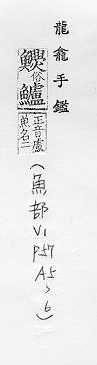 龍龕手鑑
鰥俗鱸正音盧魚名二
(魚部
V1
P57
A5
、6)